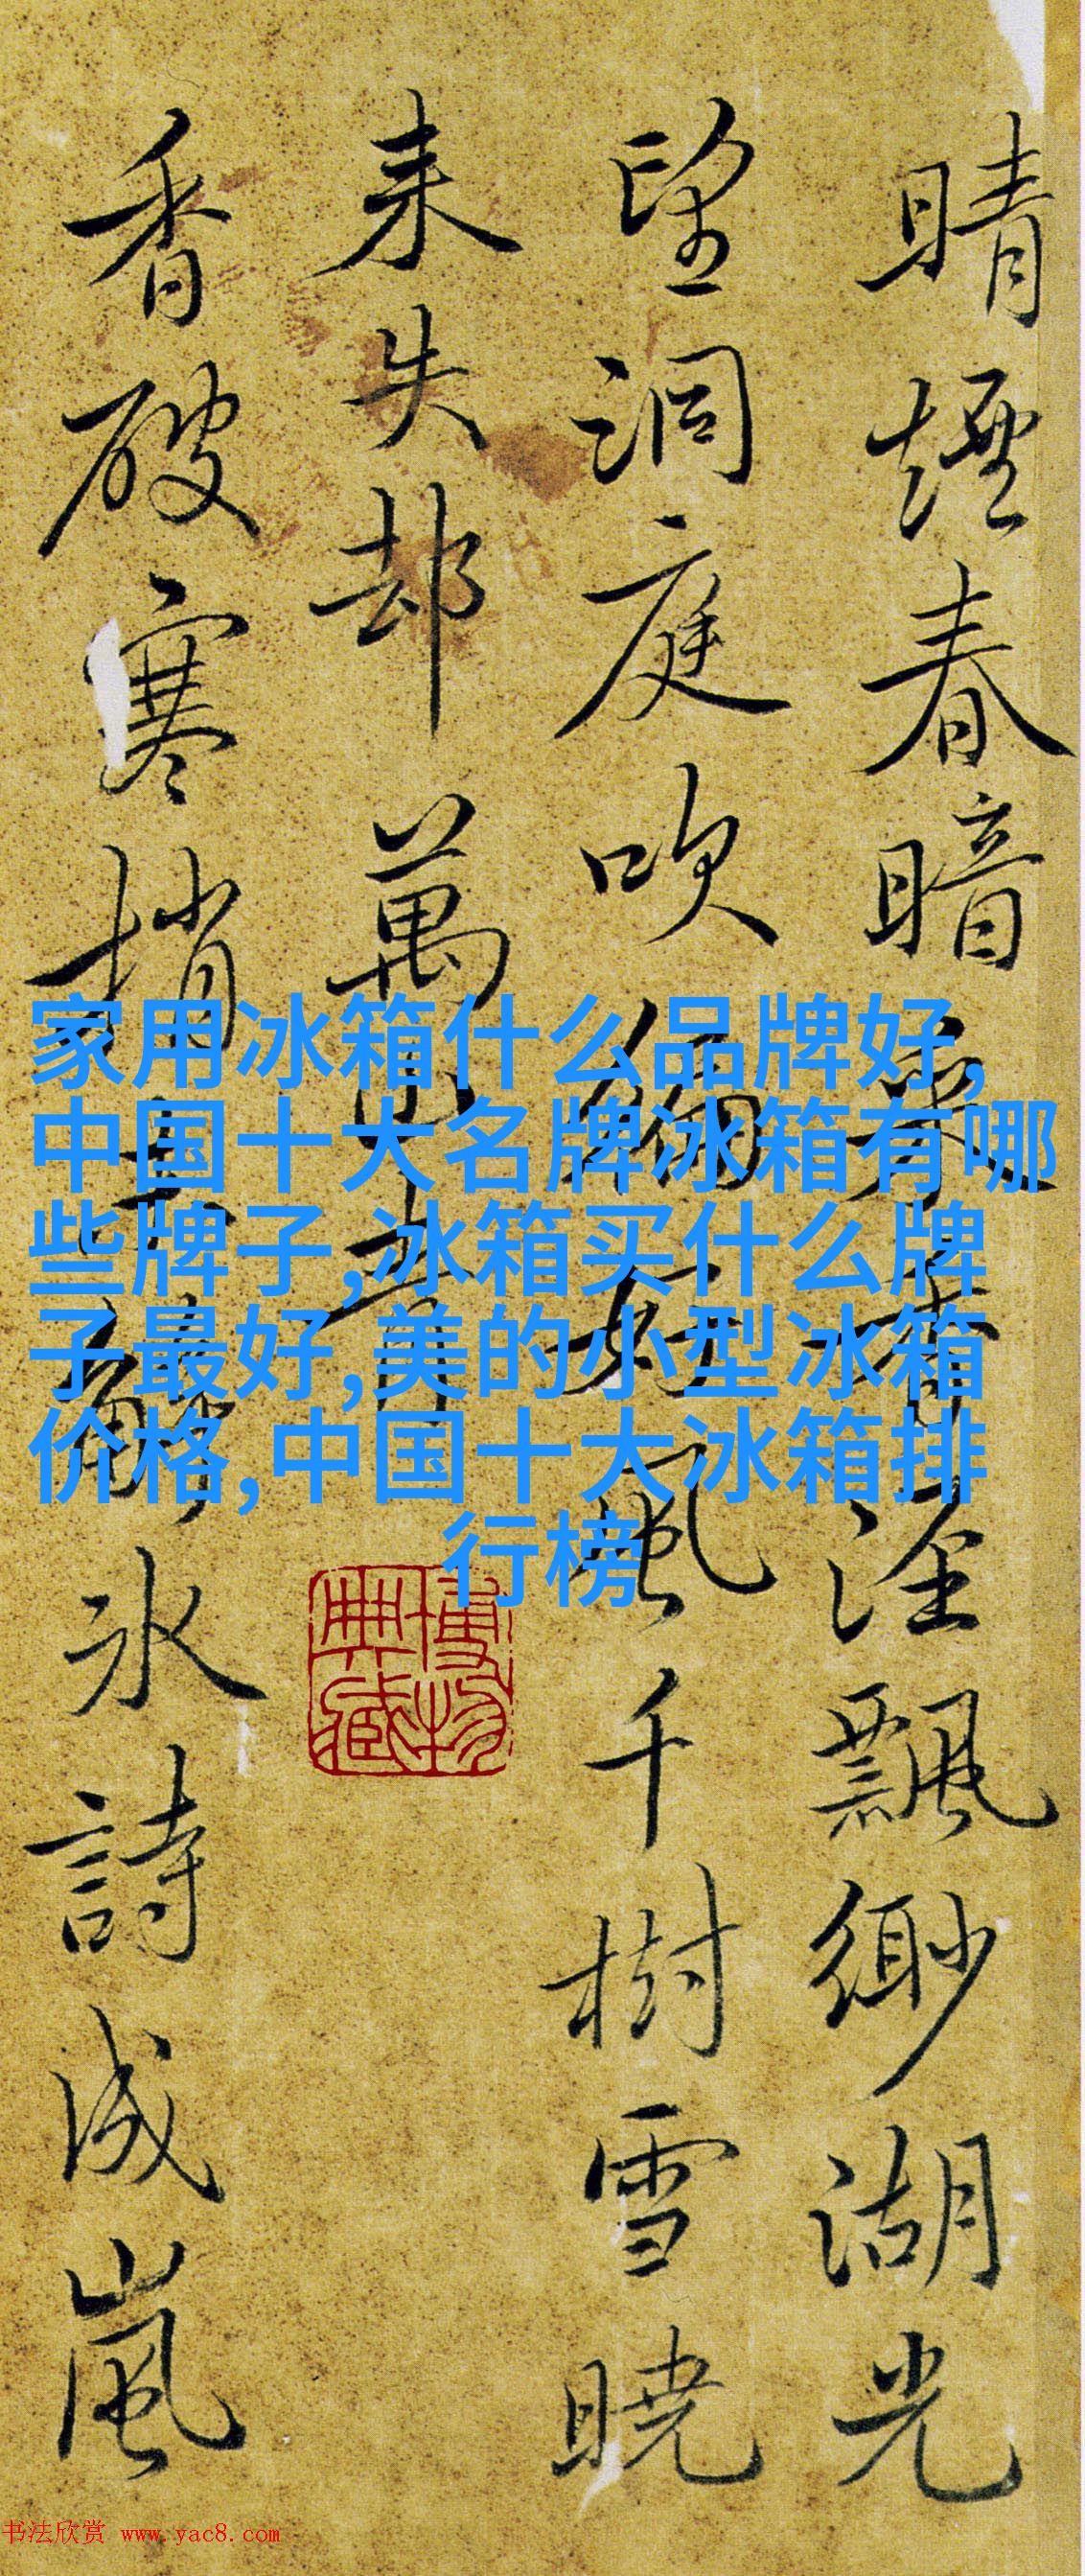 家用冰箱什么品牌好,
中国十大名牌冰箱有哪
些牌子,冰箱买什么牌
子最好,美的小型冰箱
价格,中国十大冰箱排
行榜
晴煙春暗香飄緲湖光
望洞庭吹好風千樹雪曉
来失却萬山青
香破寒梢冰詩成嵐
博物典藏
书法欣赏 www.yac8.com